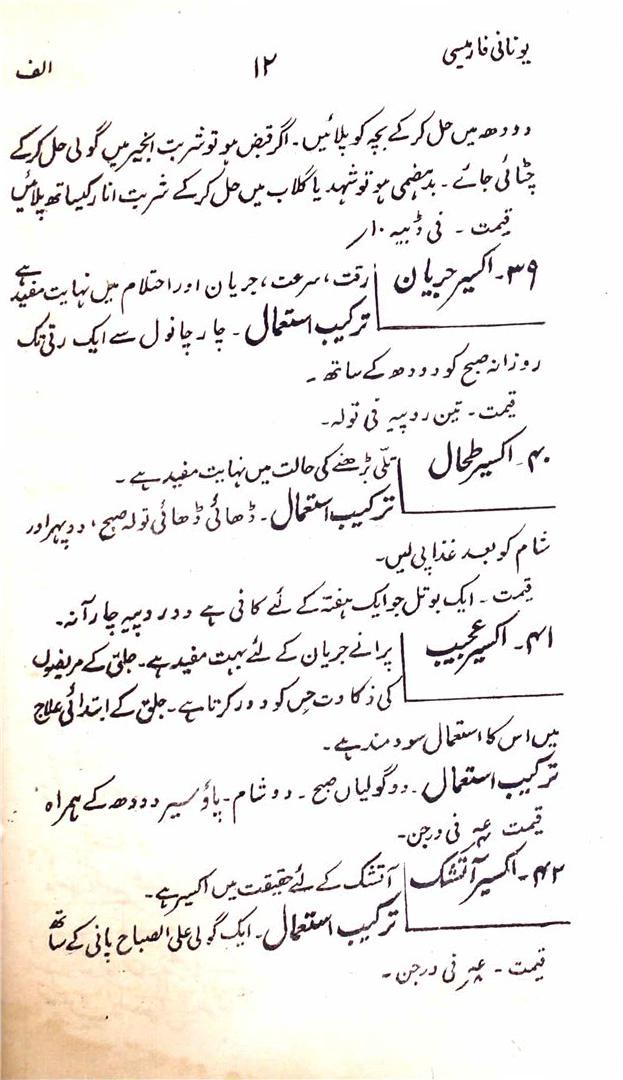 یونانی فارمیسی ۱۲ الف
دودھ میں حل کرکے بچہ کو پلائیں۔ اگر قبض ہو تو شربت انجیر میں گولی حل کرکے
چٹائی جائے۔ بدہضمی ہو تو شہد یا گلاب میں حل کرکے شربت انار کیساتھ پلائیں
قیمت ۔ فی ڈبیہ ۱۰؍
۳۹۔ اکسیر جریان رقت، سرعت، جریان اور احتلام میں نہایت مفید ہے
ترکیب استعمال ۔ چار چانول سے ایک رتی تک
روزانہ صبح کو دودھ کے ساتھ ۔
قیمت ۔ تین روپیہ فی تولہ۔
۴۰۔ اکسیر طحال تلّی بڑھنے کی حالت میں نہایت مفید ہے ۔
ترکیب استعمال ۔ ڈھائی ڈھائی تولہ صبح، دوپہر اور
شام کو بعد غذا پی لیں۔
قیمت ۔ ایک بوتل جو ایک ہفتہ کے لئے کافی ہے دو روپیہ چار آنہ ۔
۴۱۔ اکسیر عجیب پرانے جریان کے لئے بہت مفید ہے۔ جلق کے مریضوں
کی ذکاوت حس کو دور کرتا ہے۔ جلق کے ابتدائی علاج
میں اس کا استعمال سود مند ہے۔
ترکیب استعمال ۔ دو گولیاں صبح ۔ دو شام ۔ پاؤ سیر دودھ کے ہمراہ
قیمت فی درجن۔
۴۲۔ اکسیر آتشک آتشک کے لئے حقیقت میں اکسیر ہے۔
ترکیب استعمال ۔ ایک گولی علی الصباح پانی کے ساتھ
قیمت ۔ فی درجن ۔